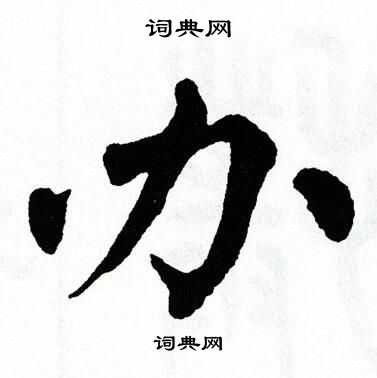 词典网
办
词典网